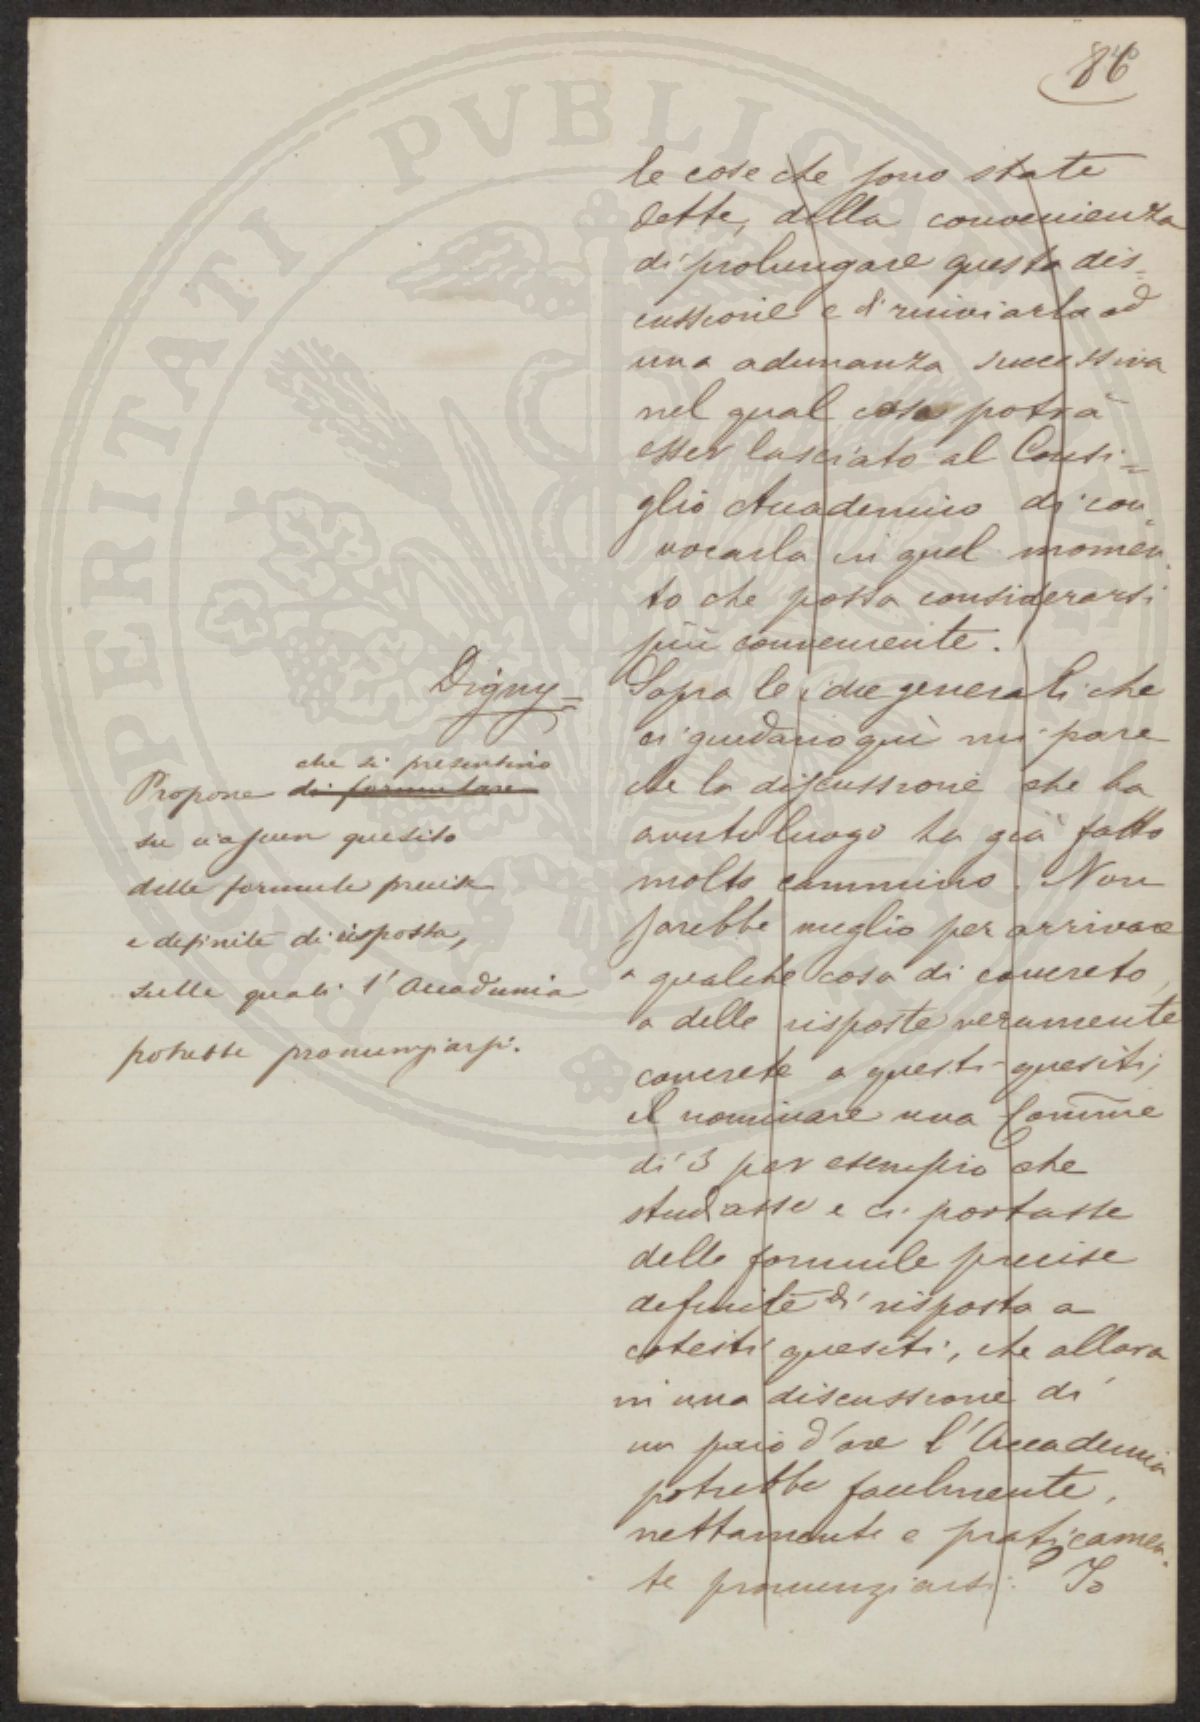 86
le cose che sono state
dette, della convenienza
di prolungare questa dis=
cussione e di rinviarla ad
una adunanza successiva
nel qual caso potrà
esser lasciato al Consi=
glio Accademico di con
vocarla in quel momen
to che possa considerarsi
più conveniente.
Digny=
Sopra le idee generali che
ci guidano qui mi pare
che la discussione che ha
avuto luogo ha già fatto
molto cammino. Non
sarebbe meglio per arrivare
a qualche cosa di concreto,
a delle risposte veramente
concrete a questi quesiti,
il nominare una Comme
di 3 per esempio che
studiasse e ci portasse
delle formule precise
definite di risposta a
cotesti quesiti, che allora
in una discussione di
un paio d'ore l'Accademia
potrebbe facilmente,
nettamente e praticamen
te pronunziarsi. Io
che si presentino
Propone di formulare
su ciascun quesito
delle formule precise
e definite di risposta,
sulle quali l'Accademia
potrebbe pronunziarsi.
PROSPERITATI PVBLICAE